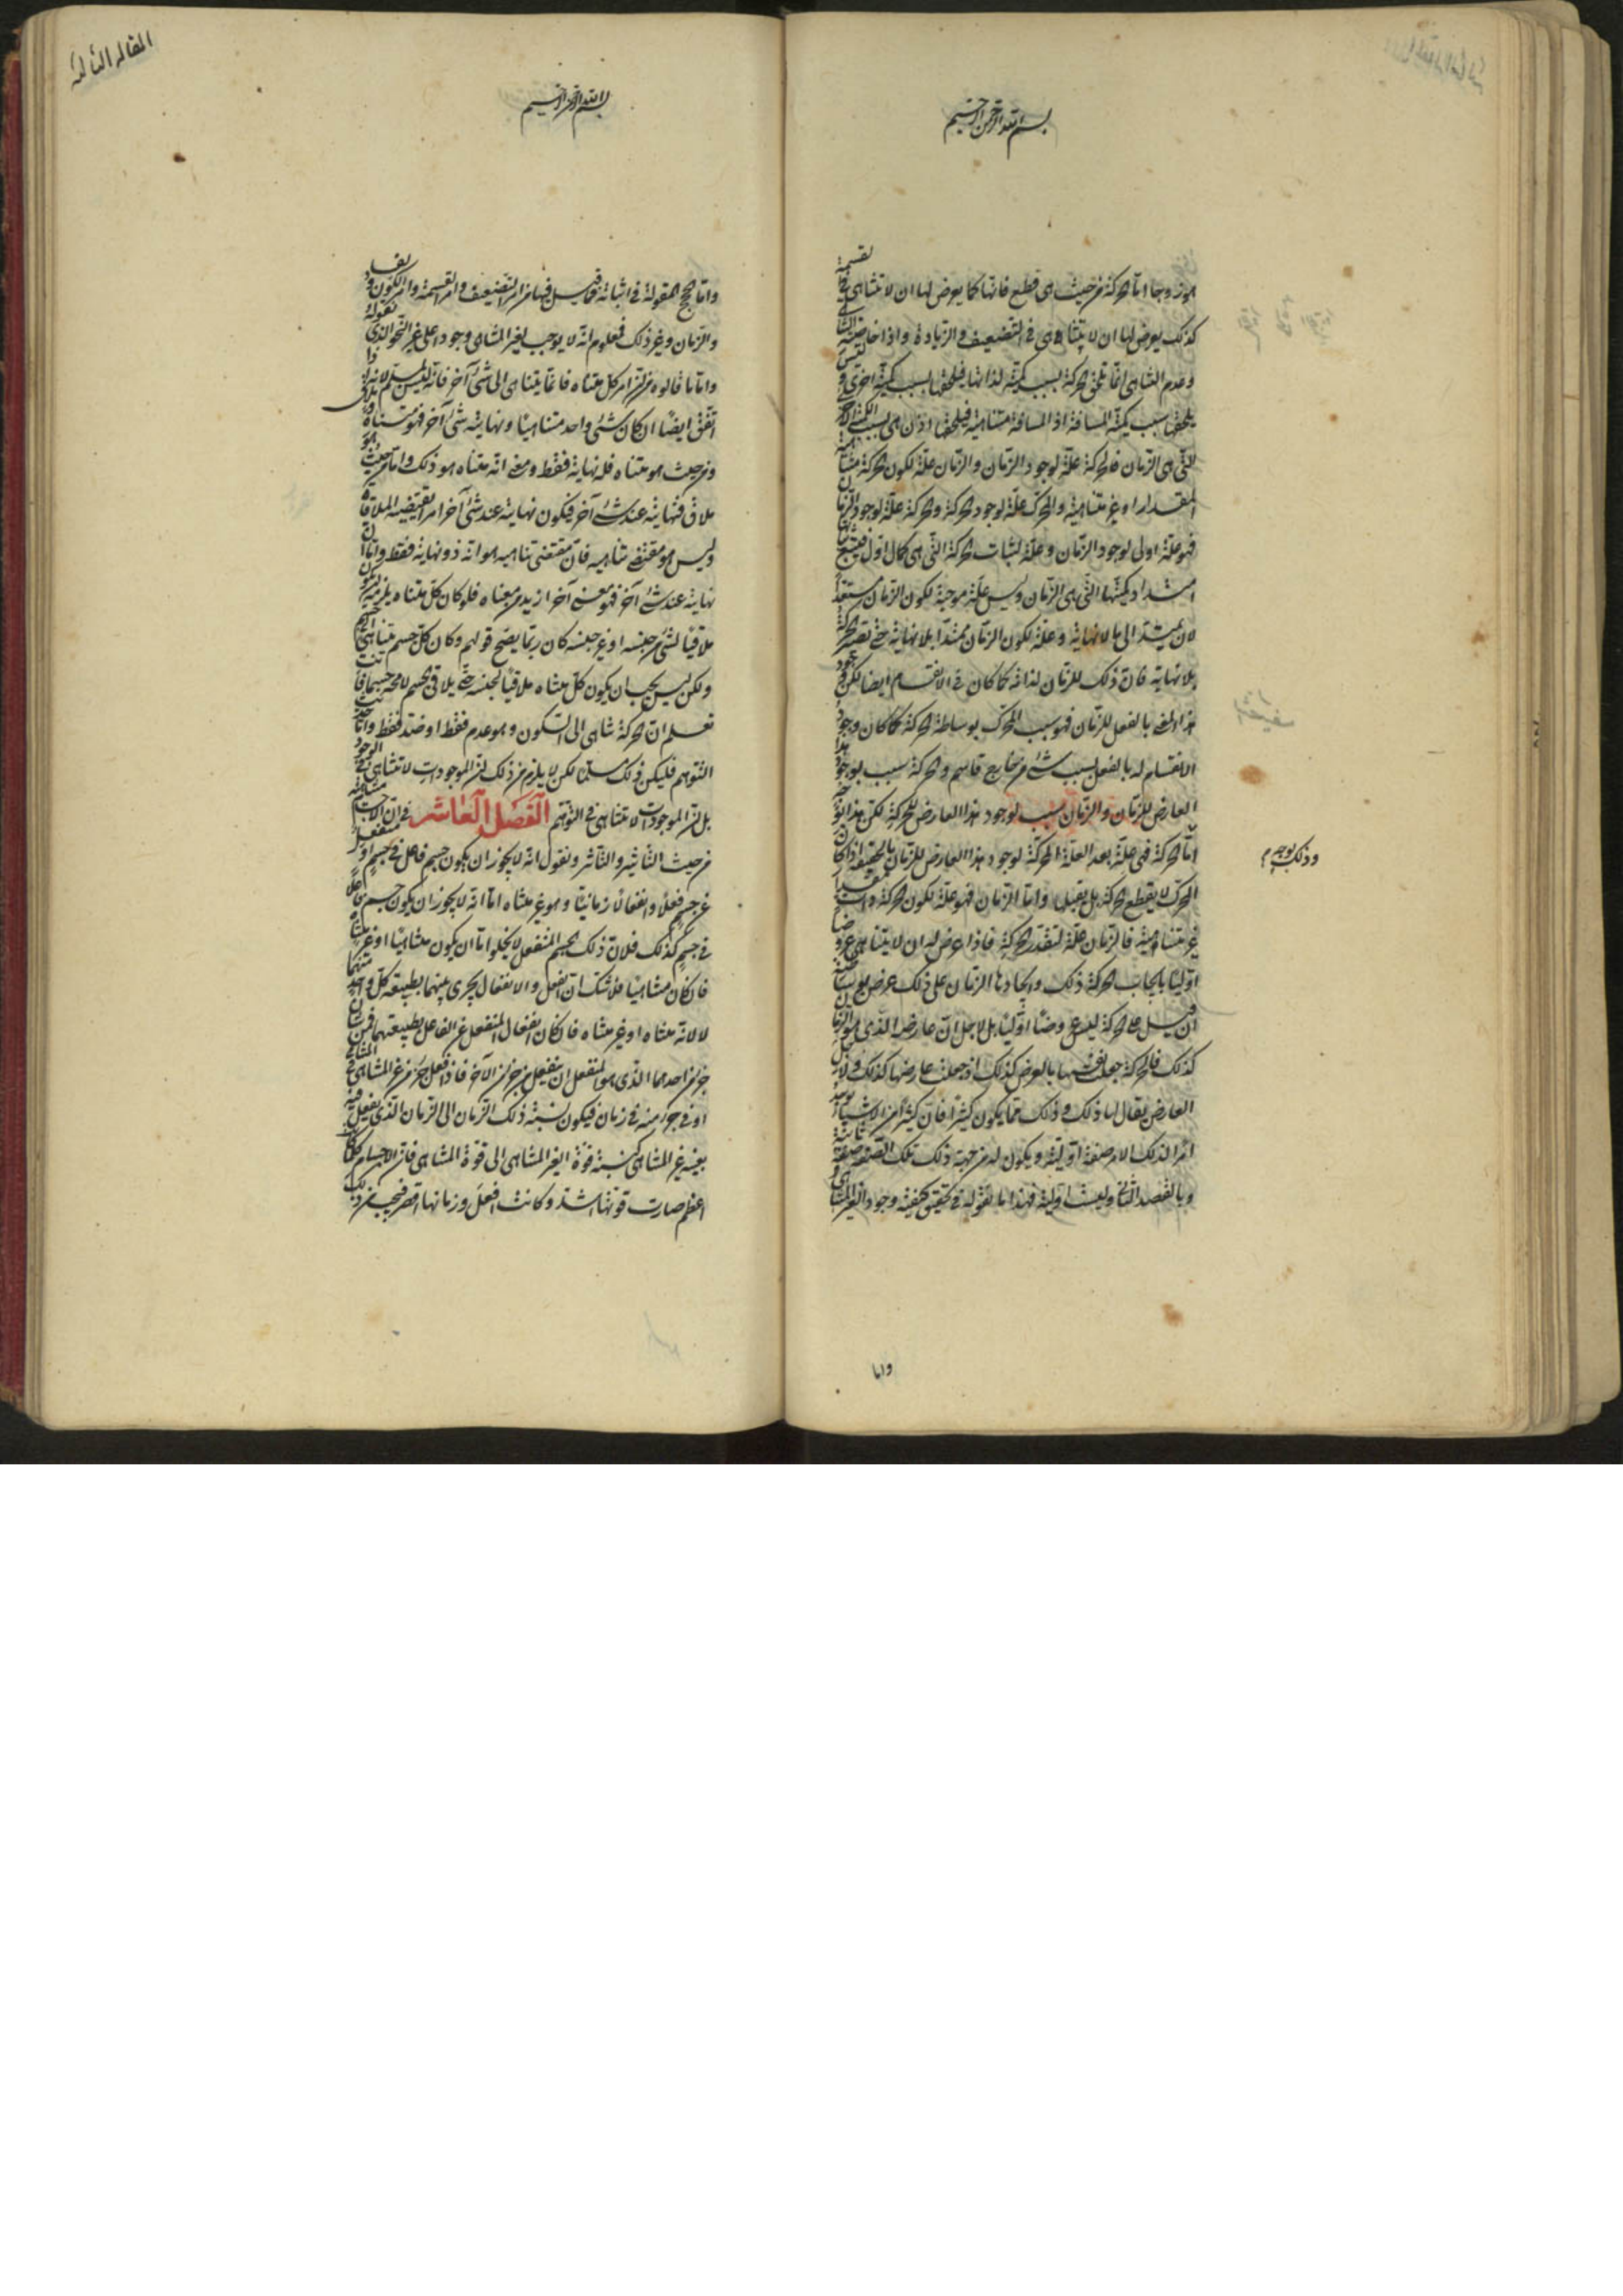 بسم الله الرحمن الرحيم
اما الحركة من حيث هي قطع فانها كما يعرض لها ان لا تتناهى في القسمة
كذلك يعرض لها ان لا يتناهى في التضعيف والزيادة واذا
وعدم التناهي انما تلحق الحركة بسبب كمية لذاتها فيلحقها بسبب كمية اخرى
يلحقها بسبب كمية المسافة اذ المسافة متناهية فيلحقها اذن بسبب الكمية
التي هي الزمان فالحركة علة لوجود الزمان والزمان علة لكون الحركة متناهية
المقدار او غير متناهية والمحرك علة لوجود الحركة والحركة علة لوجود الزمان
فهو علة اولى لوجود الزمان وعلة لثبات الحركة التي هي كمال اول فيتبع ثباتها
امتداد كميتها التي هي الزمان وليس علة موجبة لكون الزمان مستعدا
لان يمتد الى ما لا نهاية وعلة لكون الزمان ممتدا بلا نهاية حتى تصير الحركة
بلا نهاية فان ذلك للزمان لذاته كما كان في الانقسام ايضا لكن وجود
هذا المعنى بالفعل للزمان فهو بسبب المحرك بوساطة الحركة كما كان وجود
الانقسام له بالفعل بسبب شيء من خارج قاسم والحركة سبب لوجود هذا
العارض للزمان والزمان سبب لوجود هذا العارض للحركة لكن هذا
اما الحركة فهي علة بعد العلة المحركة لوجود هذا العارض للزمان بالحقيقة اذا كان
المحرك لا يقطع الحركة بل يقبلها واما الزمان فهو علة لكون الحركة ذات مقدار
غير متناهية فالزمان علة لتقدر الحركة فاذا عرض له ان لا يتناهى عروضا
اوليا بايجاب الحركة ذلك وايجادها الزمان على ذلك عرض بوساطته
ان قيل على الحركة ليس عروضا اوليا بل لاجل ان عارضه الذي هو الزمان
كذلك فالحركة جعلت نفسها بالعرض كذلك اذ جعلت عارضها كذلك ولاجل
العارض يقال لها ذلك وذلك مما يكون كثيرا فان كثيرا من الاشياء يوجد
امرا لذلك الامر صفة اولية ويكون له من جهة ذلك تلك الصفة صفة ثانية
وبالقصد الثاني وليست اولية فهذا ما نقوله في تحقيق كيفية وجود الغير المتناهي
وذلك يوجد م
واما
المقالة الثالثة
بسم الله الرحمن الرحيم
واما الحجج المقولة في اثباته فما قيل فيها من امر التضعيف وامر القسمة وامر الكون والفساد
والزمان وغير ذلك فمعلوم انه لا يوجب لغير المتناهي وجودا على غير النحو الذي نقوله
واما ما قالوه من ان كل متناه فانما يتناهى الى شيء آخر فانه ليس بمسلم لانه اذا
اتفق ايضا ان كان شيء واحد متناهيا ونهايته شيء آخر فهو متناه وملاق
ومن حيث هو متناه فله نهاية فقط ومعنى انه متناه هو ذلك واما من حيث هو
ملاق فنهايته عند شيء آخر فيكون نهايته عند شيء آخر امر يقتضيه الملاقاة
وليس هو مقتضى تناهيه فان مقتضى تناهيه هو انه ذو نهاية فقط واما ان
نهايته عند شيء آخر فهو معنى آخر ازيد من معناه فلو كان كل متناه يلزمه ان يكون
ملاقيا لشيء من جنسه او غير جنسه كان ربما يصح قولهم وكان كل جسم يتناهى الى جسم
ولكن ليس يجب ان يكون كل متناه ملاقيا لجنسه حتى يلاقي الجسم لا محالة جسما فانت
تعلم ان الحركة تتناهى الى السكون وهو عدم فقط او ضد فقط واما حديث
التوهم فليكن ذلك مسلما لكن لا يلزم من ذلك ان الموجودات لا تتناهى في الوجود
بل ان الموجودات لا تتناهى في التوهم الفصل العاشر في ان الاجسام متناهية
من حيث التاثير والتاثر ونقول انه لا يجوز ان يكون جسم فاعل في جسم او منفعل
عن جسم فعلا وانفعالا زمانيا وهو غير متناه اما انه لا يجوز ان يكون جسم فاعلا
في جسم كذلك فلان ذلك الجسم المنفعل لا يخلوا اما ان يكون متناهيا او غير متناه
فان كان متناهيا فلا شك ان الفعل والانفعال يجري بينهما بطبيعة كل واحد منهما
لا لانه متناه او غير متناه فان كان انفعال المنفعل عن الفاعل بطبيعتهما فمن شان
جزء احدهما الذي هو المنفعل ان ينفعل من جزء الآخر فاذا فعل جزء من غير المتناهي في المتناهي
او في جزء منه في زمان فيكون نسبة ذلك الزمان الى الزمان الذي يفعل فيه
بعينه غير المتناهي كنسبة قوة الغير المتناهي الى قوة المتناهي فان الاجسام كلما كان
اعظم صارت قوتها اشد وكانت افعل وزمانها اقصر فيجب من ذلك